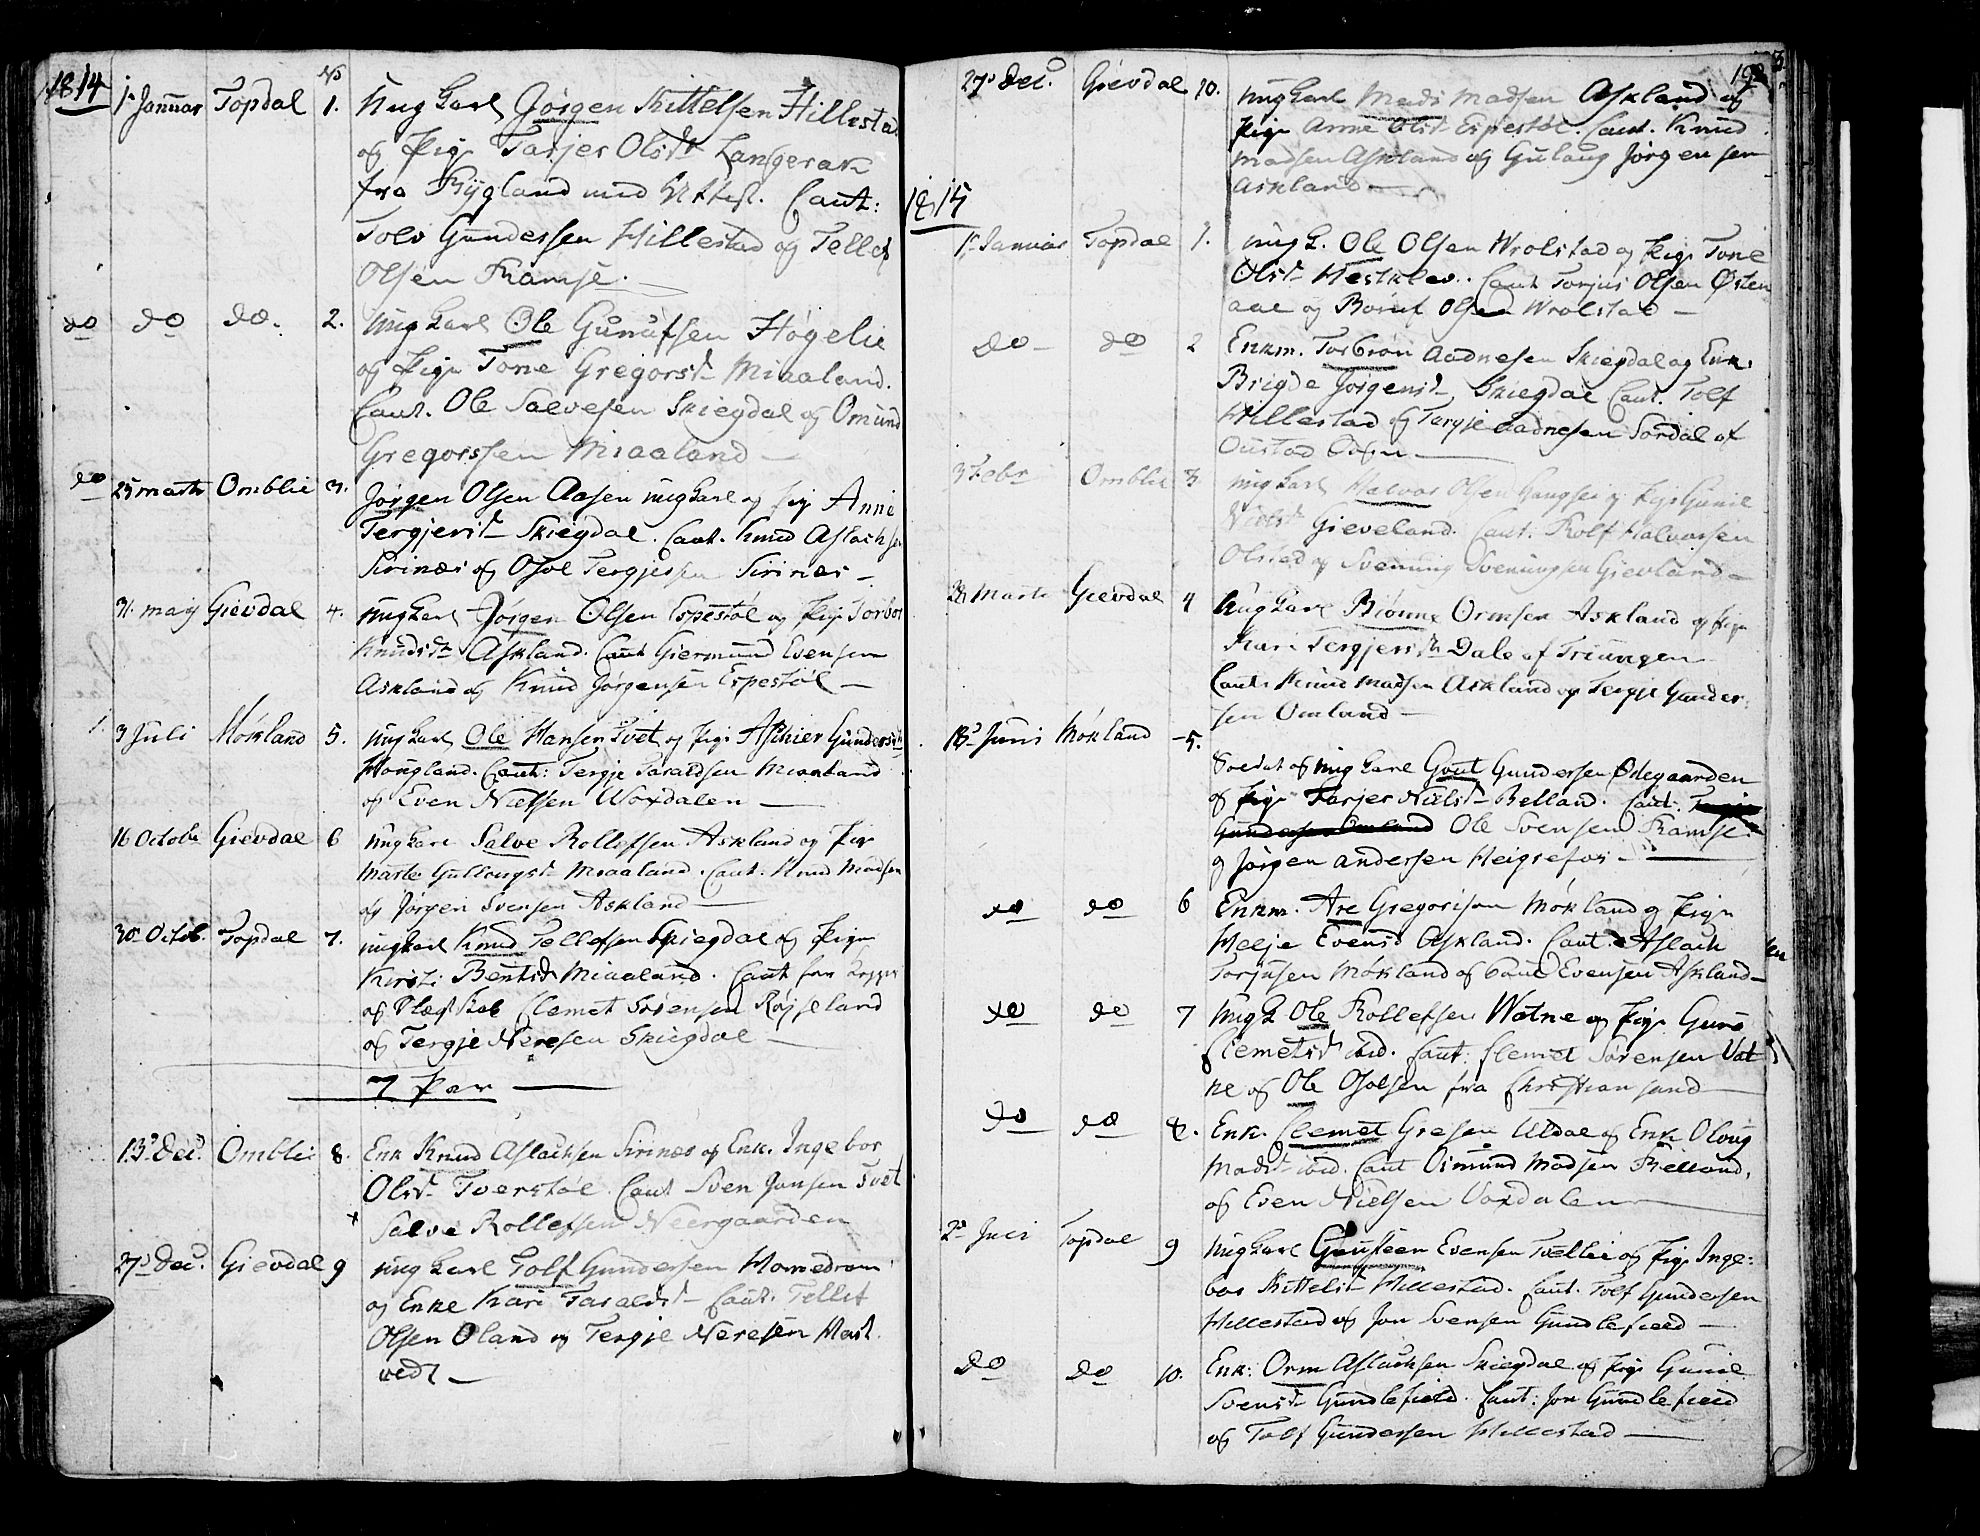 1814
No
1. Januar Topdal 1. ung Karl Jørgen Kittelsen Hillestad
og Pige Tarjer Olsd. Langerak
fra Bygland med Attest. Caut:
Tolv Gundersen Hillestad og Tellef
Olsen Ramse.
do do do. 2. ung Karl Ole Gunufsen Høgelie
og Pige Tone Gregorsd. Miaaland.
Caut. Ole Salvesen Skiegdal og Omund
Gregorssen Miaaland
do 25 marts Omblie 3. Jørgen Olsen Aasen ung Karl og Pig Anne
Tergjersd. Skiegdal. Caut. Knud Aslachsen
Sirinæs og Osol Tergjessen Sirinæs
31. maj Gievdal 4. ung Karl Jørgen Olsen Espestøl og Pige Torbor
Knudsdr Askland. Caut Giermund Evensen
Askland og Knud Jørgensen Espestøl
3 Juli Møkland 5. ung Karl Ole Hansen Tvet og Pige Aschier Gundersdr
Hougland. Caut: Tergje Taraldsen Miaaland
og Even Nielsen Uoxdalen
16 Octobr Gievdal 6 ung Karl Salve Rollefsen Askland og Pige
Marte Gullougsd. Miaaland. Caut: Knud Madsen
og Jørgen Svensen Askland
30 Octob. Topdal 7. ung Karl Knud Tellefsen Skiegdal og Pige
Kirsti Bentsdr Miaaland. Caut for
og Clemet Sørensen Røysland
og Tergje Neresen Skiegdal
7 Par
13. Dec. Omblie 8. Enk Knud Aslachsen Sirinæs og Enk. Ingebor
Olsd. Tverstøl. Caut Sven Jonsen Tvet
Salve Rollefsen Neergaarden
27. Dec. Gievdal 9 ung Karl Tolf Gundersen Homedrom
og Enke Kari Taraldsd. Caut. Tellef
Olsen Oland og Tergje Neresen Hart
vedt
192
27. Dec. Gievdal 10. ung Karl Mads Madsen Askland og
Pige Anne Olsd. Espestøl. Caut. Knud
Madsen Askland og Gulaug Jørgensen
Askland
1815
1. Januar Topdal 1. ung K. Ole Olsen Wrolstad og Pige Tone
Olsd. Hestklev. Caut Torjus Olsen Østen
aae og Olsen Wrolstad
do do 2 Enkm. Torbrøn Aadnesen Skiegdal og Enk.
Brigde Jørgensd. Skiegdal Caut. Tolf
Hillestad og Targje Aadnesen Sordal af
Oustad Sogn
3 Febr Omblie 3 ung Karl Halvor Olsen og Pige Gunil
Nielsd. Gieveland. Caut: Rolf Halvorsen
Olstad og Svenung Svenungsen Gievland
28 Marts Gievdal 4 ung Karl Biørn Ormsen Askland og Pige
Kari Tergjersdr Dale af Triungen
Caut. Knud Madsen Askland og Tergje Gunder
sen Omland
18. Juni Møkland 5. Soldat og ung Karl Gout Gundersen Ødegaarden
og Pige Tarjer Nielsd. Belland. Caut: Tergje
Gundersen Omland Ole Svensen Ramse
og Jørgen Andersen Heigrefos
do do 6 Enkm. Are Gregorisen Møkland og Pige
Helje Evensd. Askland. Caut. Aslach
Torjusen Møkland og Evensen Askland
do do 7 ung K Ole Rollefsen Watne og Pige Guro
Clemetsd. ibid. Caut: Clemet Sørensen Vat
ne og Ole Osolsen fra Christiansand
do do 8. Enk. Clemet Gresen Uldal og Enk Oloug
Madsd. ibid. Caut Osmund Madsen Bielland,
og Even Nielsen Voxdalen
2. Juli Topdal 9 ung Karl Gousteen Evensen Tvellie og Pige Inge:
bor Kittelsd. Hillestad. Caut. Tolf Gundersen
Hillestad og Jon Svensen Gundlefield
do do 10. Enk: Orm Aslachsen Skiegdal og Pige Gunil
Svensd. Gundlefield. Caut: Jon Gundlefield
og Tolf Gundersen Hillestad